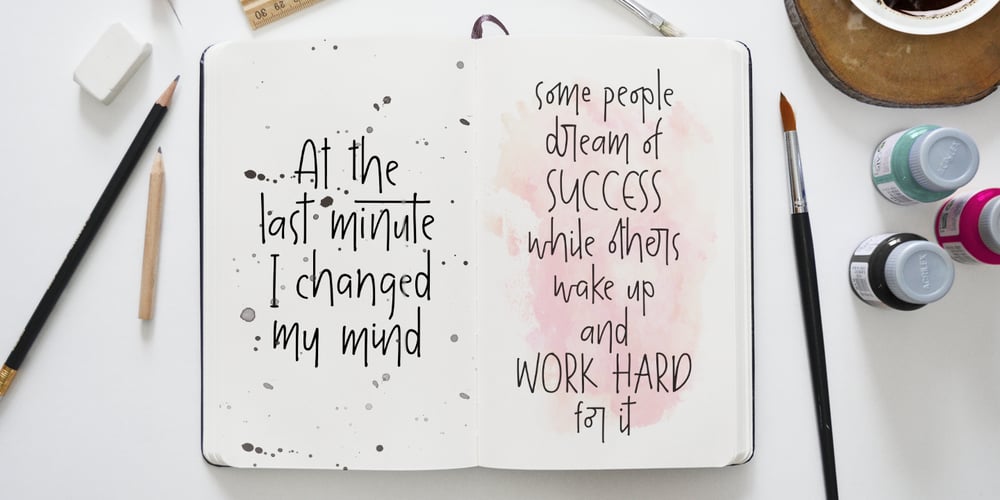 29 30
At the
last minute
I changed
my mind
some people
dream of
SUCCESS
while others
wake up
and
WORK HARD
for it